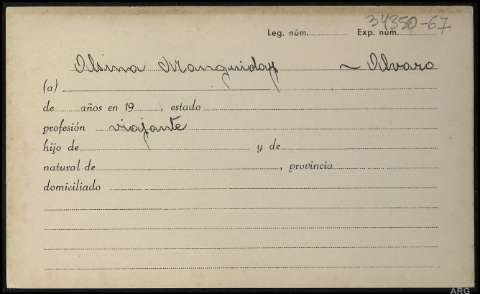 Leg. núm. Exp. núm. 34350-67
Alsina Manguiday ~ Alvaro
(a)
de años en 19 , estado
profesión viajante
hijo de y de
natural de , provincia
domiciliado
ARG